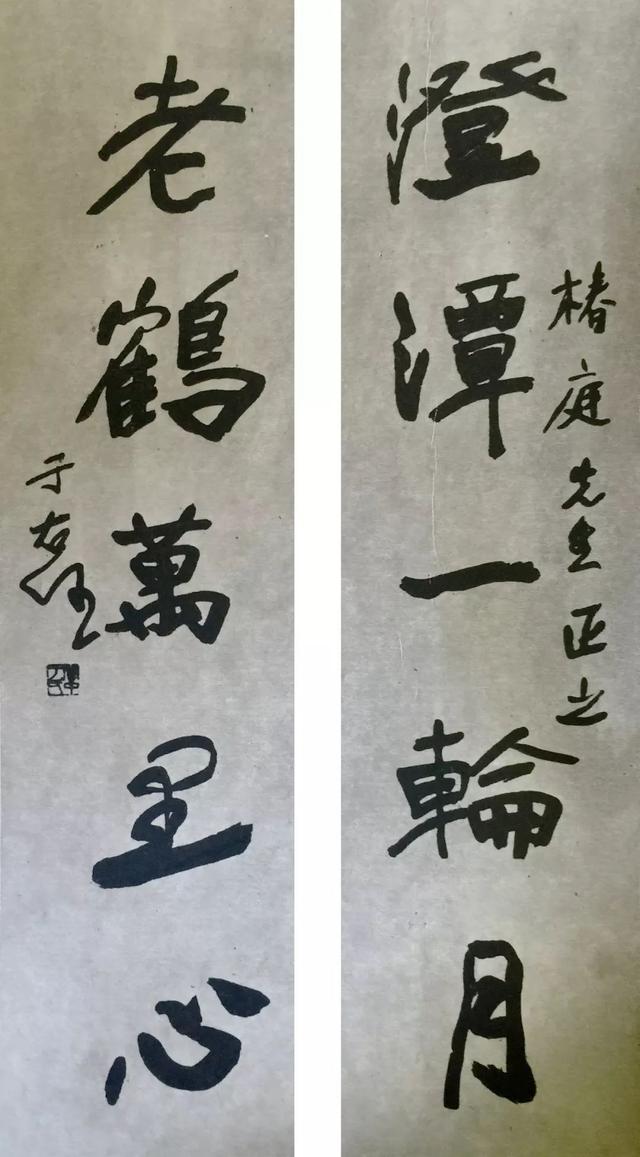 椿庭先生正之
澄潭一輪月
老鶴萬里心
于右任